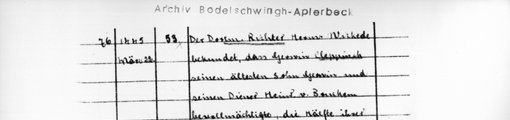 Archiv Bodelschwingh-Aplerbeck
76 1445 53, Der Dortm. Richter Herm. Wickede
März 22 bekundet, dass Gerwin Cleppinck
seinen ältesten Sohn Gerwin und
seinen Diener Heinr. v. Bochem
bevollmächtigte, die Hälfte ihrer